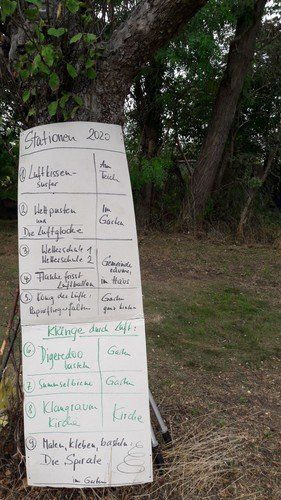 Stationen 2020
① Luftkissen-
surfer
Am
Teich
2. Wettpusten
und
Die Luftglocke
Im
Garten
③ Wetterschule 1
Wetterschule 2
④ Flasche frisst
Luftballon
Gemeinde
räume,
im Haus
⑤ König der Lüfte:
Papierfliegerfalten
Garten
ganz hinten
Klänge durch Luft:
⑥ Digeredoo
basteln
Garten
7. Summselbiene
Garten
⑧ Klangraum
Kirche
Kirche
⑨ Malen, kleben, basteln:
Die Spirale
im Garten